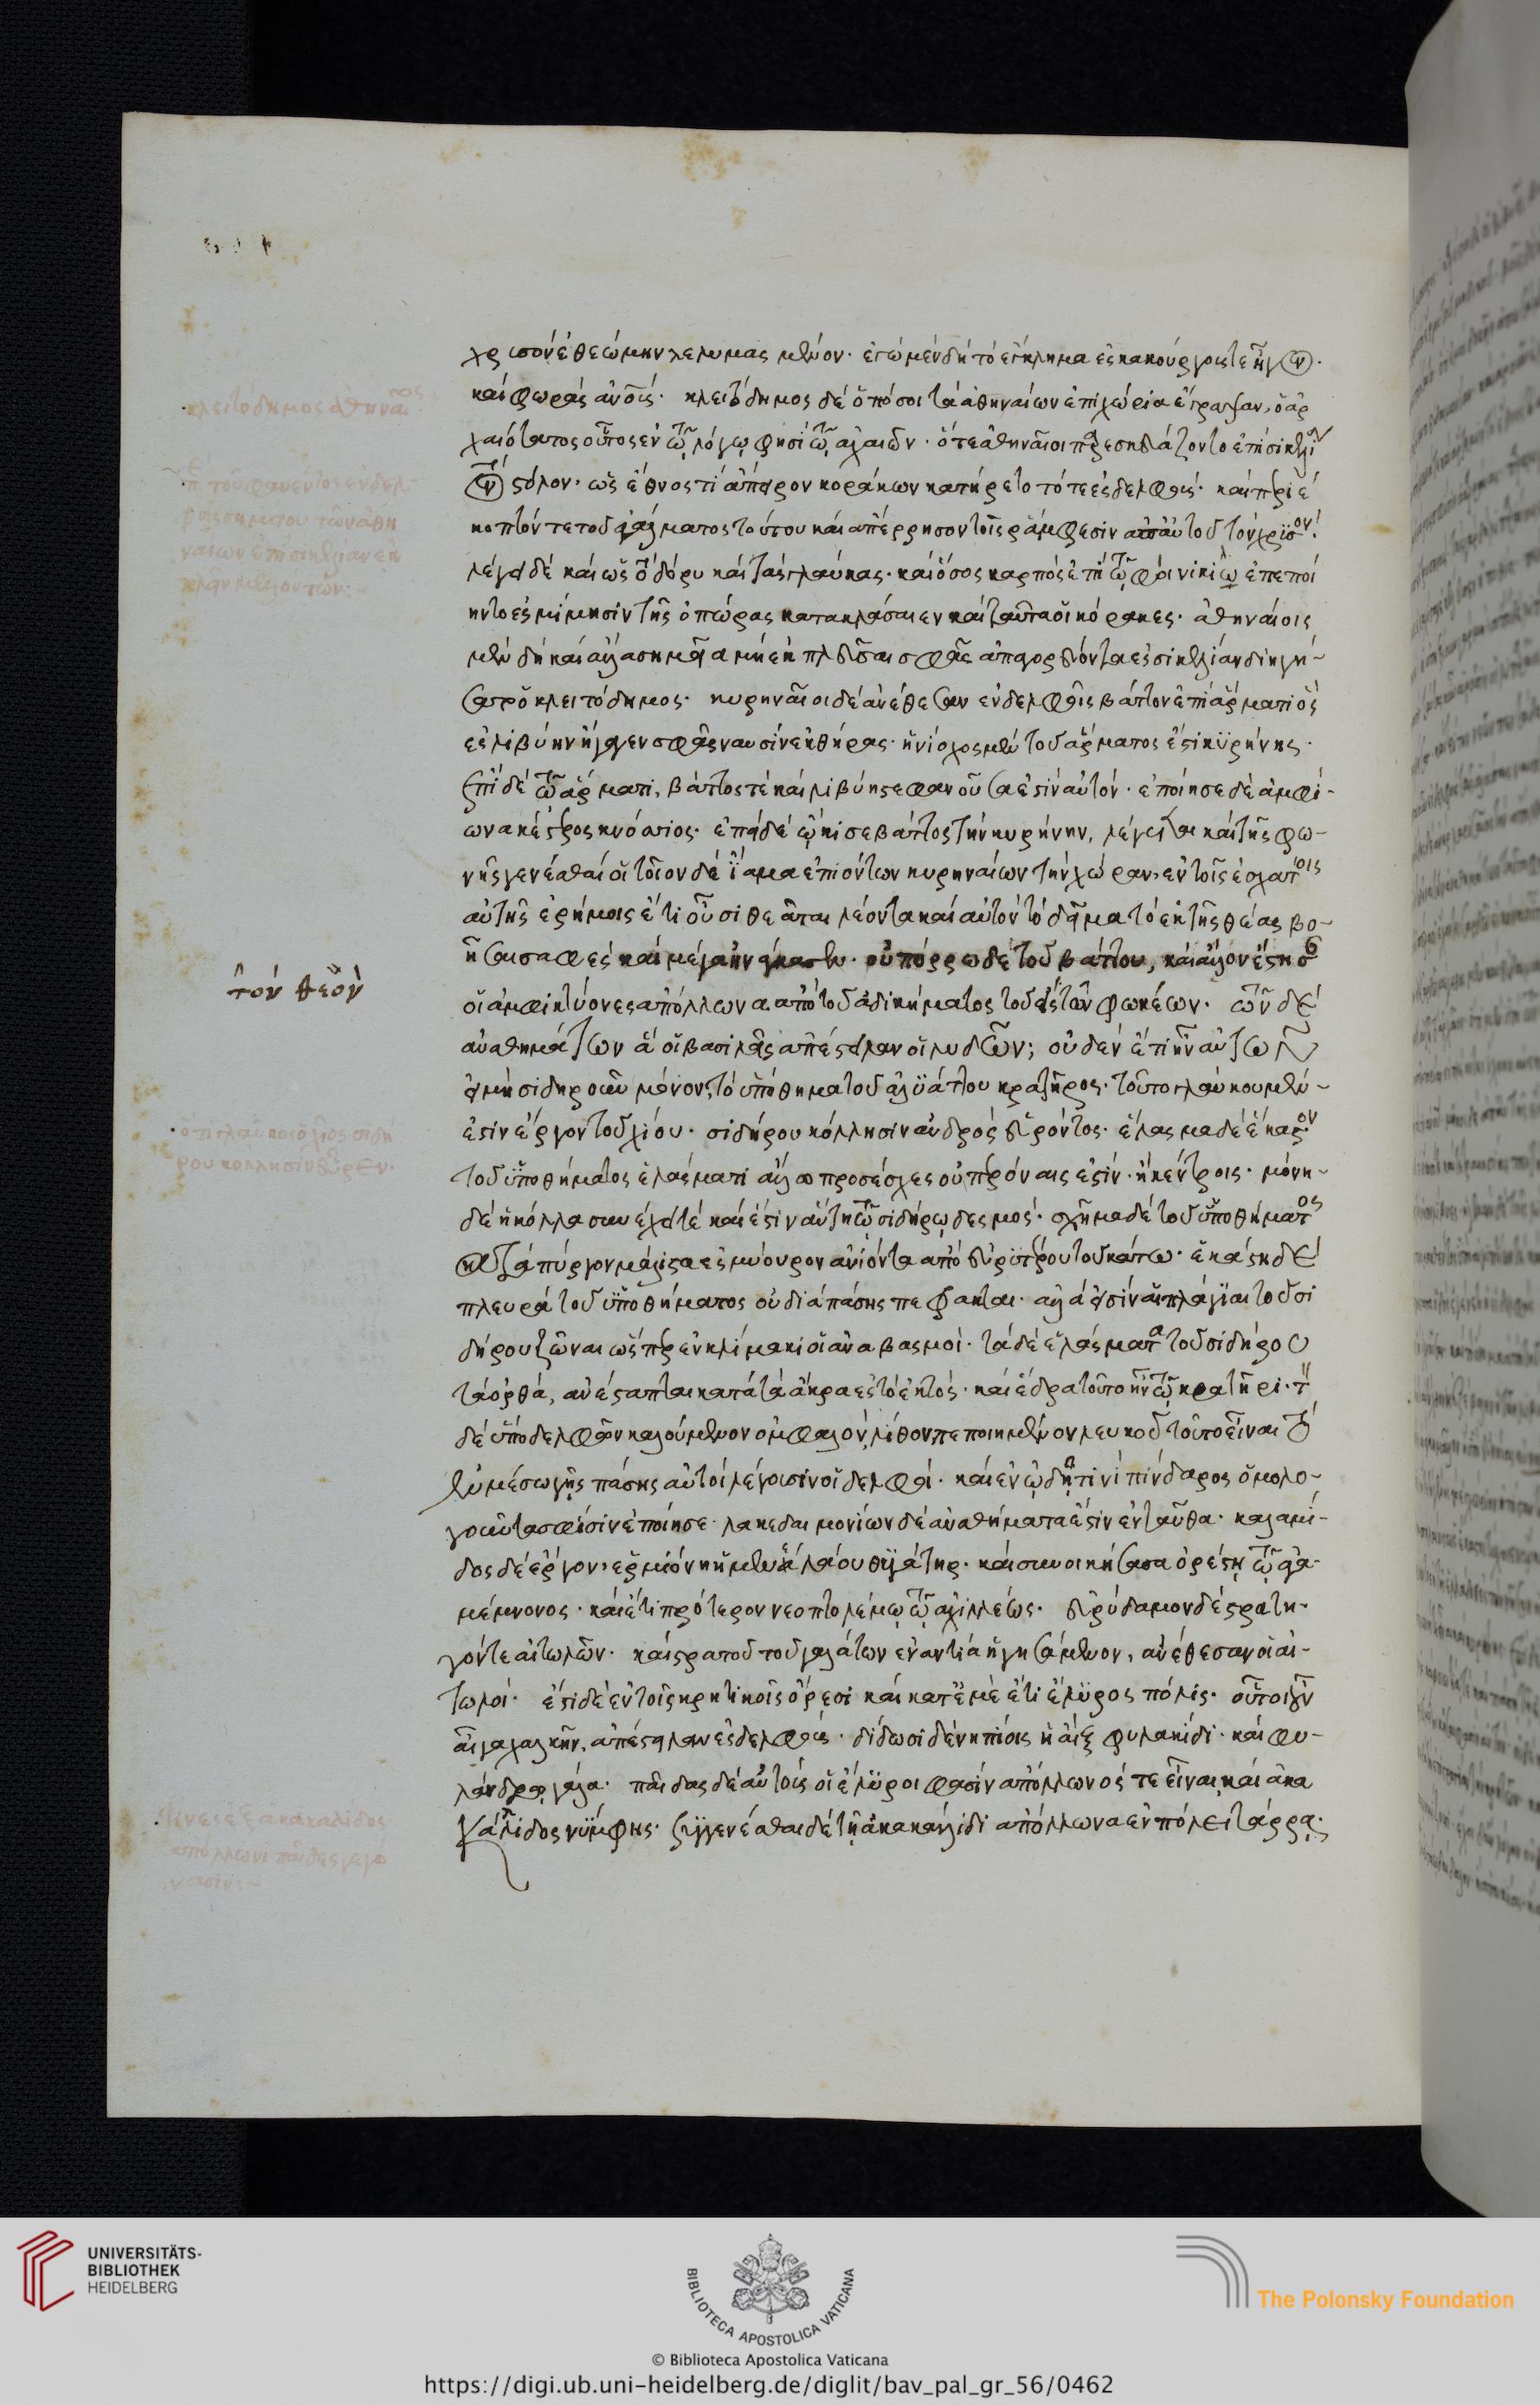 χρυσὸν ἐθεώμην λελυμασμένον. ἐγὼ μὲν δὴ τὸ ἔγκλημα ἐς κακούργους τε ἦγον.
καὶ φῶρας ἀνθρώπους. κλειτόδημος δὲ ὁπόσοι τὰ ἀθηναίων ἐπιχώρια ἔγραψαν, ὁ ἀρ
χαιότατος οὗτος ἐν τῷ λόγῳ φησὶ τῷ ἀττικῷ. ὅτε ἀθηναῖοι παρεσκευάζοντο ἐπὶ σικελίᾳ
τὸν στόλον. ὡς ἔθνος τι ἄπειρον κοράκων κατῆρε τότε ἐς δελφούς. καὶ περιέ
κοπτόν τε τοῦ ἀγάλματος τούτου καὶ ἀπέρρησσον τοῖς ῥάμφεσιν ἀπ' αὐτοῦ τὸν χρυσόν.
λέγει δὲ καὶ ὡς τὸ δόρυ καὶ τὰς γλαύκας. καὶ ὅσος καρπὸς ἐπὶ τῷ φοίνικι ἐπεποί
ητο ἐς μίμησιν τῆς ὀπώρας κατακλάσαιεν καὶ ταῦτα οἱ κόρακες. ἀθηναίοις
μὲν δὴ καὶ ἄλλα σημεῖα μὴ ἐκπλεῦσαι σφᾶς ἀπαγορεύοντα ἐς σικελίαν διηγή-
σατο ὁ κλειτόδημος. κυρηναῖοι δὲ ἀνέθεσαν ἐν δελφοῖς βάττον ἐπὶ ἅρματι ὃς
ἐς λιβύην ἤγαγεν σφᾶς ναυσὶν ἐκ θήρας. ἡνίοχος μὲν τοῦ ἅρματός ἐστι κυρήνη.
ἐπὶ δὲ τῷ ἅρματι, βάττος τε καὶ λιβύη στεφανοῦσά ἐστιν αὐτόν. ἐποίησε δὲ ἀμφί-
ων ἀκέστορος κνόσσιος. ἐπεὶ δὲ ᾤκισε βάττος τὴν κυρήνην, λέγεται καὶ τῆς φω-
νῆς γενέσθαι οἱ τοιόνδε ἴαμα ἐπιόντων κυρηναίων τὴν χώραν, ἐν τοῖς ἐσχάτοις
αὐτῆς ἐρήμοις ἔτι οὖσι θεᾶται λέοντα καὶ αὐτὸν τὸ δεῖμα τὸ ἐκ τῆς θέας βο-
ῆσαι σαφὲς καὶ μέγα ἠνάγκασεν. οὐ πόρρω δὲ τοῦ βάττου, καὶ ἄλλον ἔστησ
τὸν θεὸν
οἱ ἀμφικτύονες ἀπόλλωνα ἀπὸ τοῦ ἀδικήματος τοῦ ἐς τῶν φωκέων. τῶν δὲ
ἀναθημάτων ἃ οἱ βασιλεῖς ἀπέστειλαν οἱ λυδῶν; οὐδὲν ἔτι ἦν αὐτῶν
εἰ μὴ σιδηροῦν μόνον, τὸ ὑπόθημα τοῦ ἀλυάττου κρατῆρος. τοῦτο γλαύκου μέν-
ἐστιν ἔργον τοῦ χίου. σιδήρου κόλλησιν ἀνδρὸς εὑρόντος. ἔλασμα δὲ ἕκαστον
τοῦ ὑποθήματος ἐλάσματι ἄλλῳ προσεχὲς οὐ περόναις ἐστὶν. ἢ κέντροις. μόνη-
δὲ ἡ κόλλα συνέχει τε καὶ ἔστιν αὕτη τῷ σιδήρῳ δεσμός. σχῆμα δὲ τοῦ ὑποθήματος
κατὰ πύργον μάλιστα ἐς μύουρον ἀνιόντα ἀπὸ εὐρυτέρου τοῦ κάτω. ἑκάστη δὲ
πλευρὰ τοῦ ὑποθήματος οὐ διὰ πάσης πέφρακται. ἀλλά εἰσιν αἱ πλάγιαι τοῦ σι
δήρου ζῶναι ὥσπερ ἐν κλίμακι οἱ ἀναβασμοί. τὰ δὲ ἐλάσματα τοῦ σιδήρου
τὰ ὀρθά, ἀνέστραπται κατὰ τὰ ἄκρα ἐς τὸ ἐκτός. καὶ ἕδρα τοῦτο ἦν τῷ κρατῆρι. τὸν
δὲ ὑπὸ δελφῶν καλούμενον ὀμφαλὸν, λίθου πεποιημένον λευκοῦ τοῦτο εἶναι τὸ
ἐν μέσῳ γῆς πάσης αὐτοὶ λέγουσιν οἱ δελφοί. καὶ ἐν ᾠδῇ τινι πίνδαρος ὁμολο-
γοῦντα σφίσιν ἐποίησε. λακεδαιμονίων δὲ ἀνάθημα ἐστιν ἐνταῦθα. καλάμι-
δος δὲ ἔργον. ἑρμιόνη ἡ μενελάου θυγάτηρ. καὶ συνοικήσασα ὀρέστῃ τῷ ἀγα-
μέμνονος. καὶ ἔτι πρότερον νεοπτολέμῳ τῷ ἀχιλλέως. εὐρύδαμον δὲ στρατη-
γόν τε αἰτωλῶν. καὶ στρατοῦ τοῦ γαλατῶν ἐναντία ἡγησάμενον, ἀνέθεσαν οἱ αἰ-
τωλοί. ἔστι δὲ ἐν τοῖς κρητικοῖς ὄρεσι καὶ κατ' ἐμὲ ἔτι ἔλυρος πόλις. οὗτοι οὖν
αἶγα χαλκῆν, ἀπέστειλαν ἐς δελφούς. δίδωσι δὲ νηπίοις ἡ αἲξ φυλακίδι. καὶ φυ-
λάνδρῳ γάλα. παῖδας δὲ αὐτοὺς οἱ ἐλύριοι φασὶν ἀπόλλωνός τε εἶναι, καὶ ἀκα
καλλίδος νύμφης. συγγενέσθαι δὲ τῇ ἀκακαλλίδι ἀπόλλωνα ἐν πόλει τάρρᾳ.
κλειτόδημος ἀθηναῖος
UNIVERSITÄTS-
BIBLIOTHEK
HEIDELBERG
BIBLIOTECA APOSTOLICA VATICANA
The Polonsky Foundation
© Biblioteca Apostolica Vaticana
https://digi.ub.uni-heidelberg.de/diglit/bav_pal_gr_56/0462